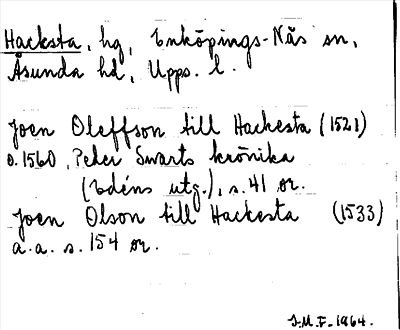 Hacksta, hg, Enköpings-Näs sn,
Åsunda hd, Upps. l.
Joen Oleffson till Hackesta (1521)
o. 1560, Peder Swarts krönika
(Edéns utg.), s. 41 or.
Joen Olson till Hackesta (1533)
a.a. s. 154 or.
I.M.F. 1964.